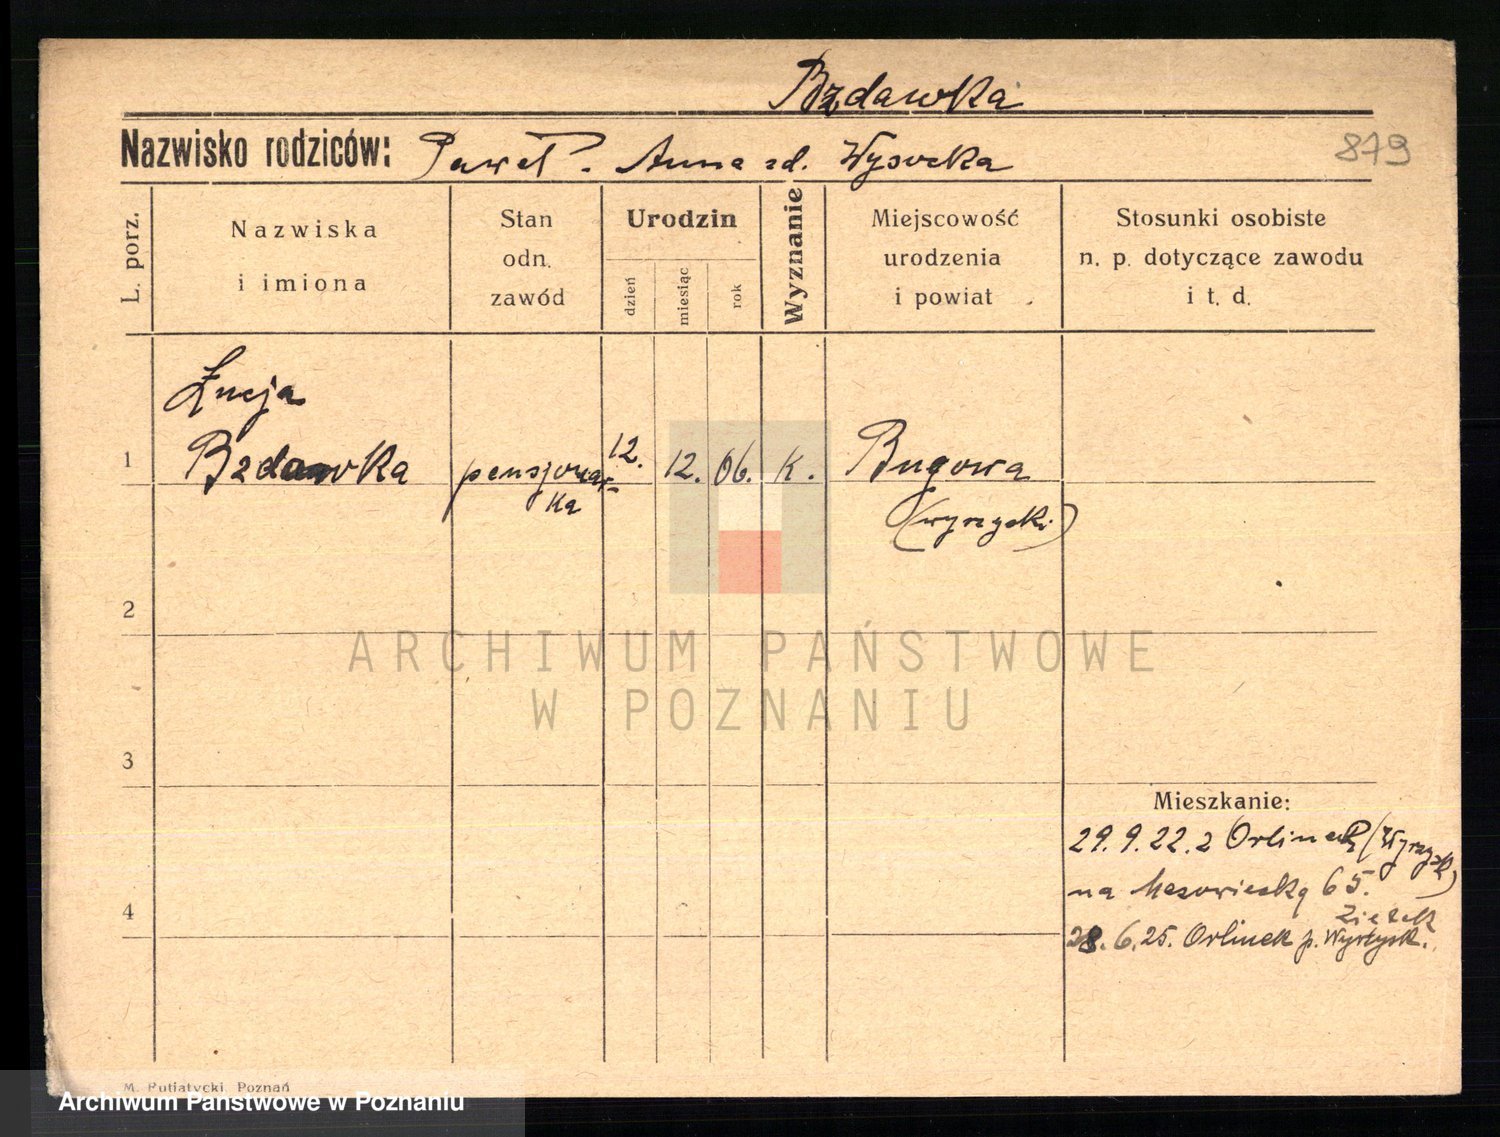 Bzdawka
Nazwisko rodziców: Paweł. Anna zd. Wysocka
879
L. porz.
Nazwiska
i imiona
Stan
odn.
zawód
Urodzin
dzień
miesiąc
rok
Wyznanie
Miejscowość
urodzenia
i powiat
Stosunki osobiste
n. p. dotyczące zawodu
i t. d.
Łucja
1 Bzdawka pensjonar- 12. 12. 06. K. Bugowa
ka (wyrzyski)
2
ARCHIWUM PAŃSTWOWE
W POZNANIU
3
Mieszkanie:
29.9.22. z Orlinek (Wyrzysk)
na Mazowiecką 65.
4
28.6.25. Orlinek p. Wyrzysk.
M. Putiatycki, Poznań
Archiwum Państwowe w Poznaniu